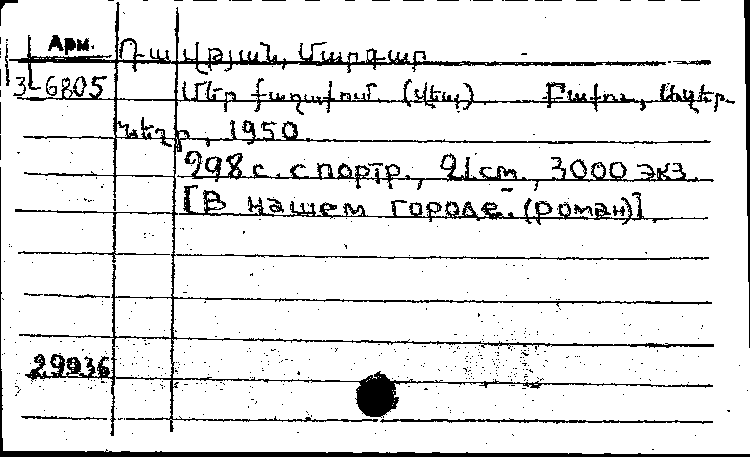 Арм.
Դավթյան, Մարգար
3-6805
Մեր քաղաքում. (վեպ) Բաքու, Ազեր-
նեշր, 1950.
298 с. с портр., 21 см., 3000 экз.
[В нашем городе. (роман)]
29936